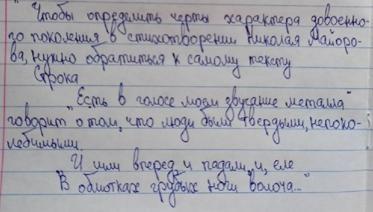 "Чтобы определить черты характера довоенно-
го поколения в стихотворении Николая Майоро-
ва, нужно обратиться к самому тексту
Строка
"Есть в голосе моем звучание металла"
говорит о том, что люди были твердыми, непоко-
лебимыми.
И шли вперед, и падали, и, еле
В обмотках грубых ноги волоча..."